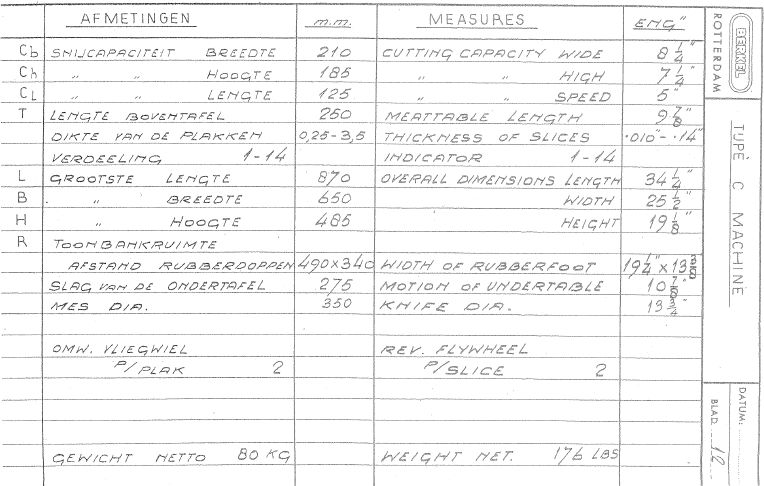 AFMETINGEN m.m. MEASURES ENG"
Cb SNIJCAPACITEIT BREEDTE 210 CUTTING CAPACITY WIDE 8 1/4"
Ch " " HOOGTE 185 " " HIGH 7 1/4"
CL " " LENGTE 125 " SPEED 5"
T LENGTE BOVENTAFEL 250 MEATTABLE LENGTH 9 7/8"
DIKTE VAN DE PLAKKEN 0,25-3,5 THICKNESS OF SLICES .010"-.14"
VERDEELING 1-14 INDICATOR 1-14
L GROOTSTE LENGTE 870 OVERALL DIMENSIONS LENGTH 34 1/4"
B " BREEDTE 650 WIDTH 25 1/2"
H " HOOGTE 485 HEIGHT 19 1/8"
R TOONBANKRUIMTE
AFSTAND RUBBERDOPPEN 490x340 WIDTH OF RUBBERFOOT 19 1/4" x 13
SLAG VAN DE ONDERTAFEL 275 MOTION OF UNDERTABLE 10 7/8"
MES DIA. 350 KNIFE DIA. 13 3/4"
OMW. VLIEGWIEL REV. FLYWHEEL
P/PLAK 2 P/SLICE 2
GEWICHT NETTO 80 KG WEIGHT NET. 176 LBS
BERKEL
ROTTERDAM
TYPE C MACHINE
DATUM:
BLAD 12